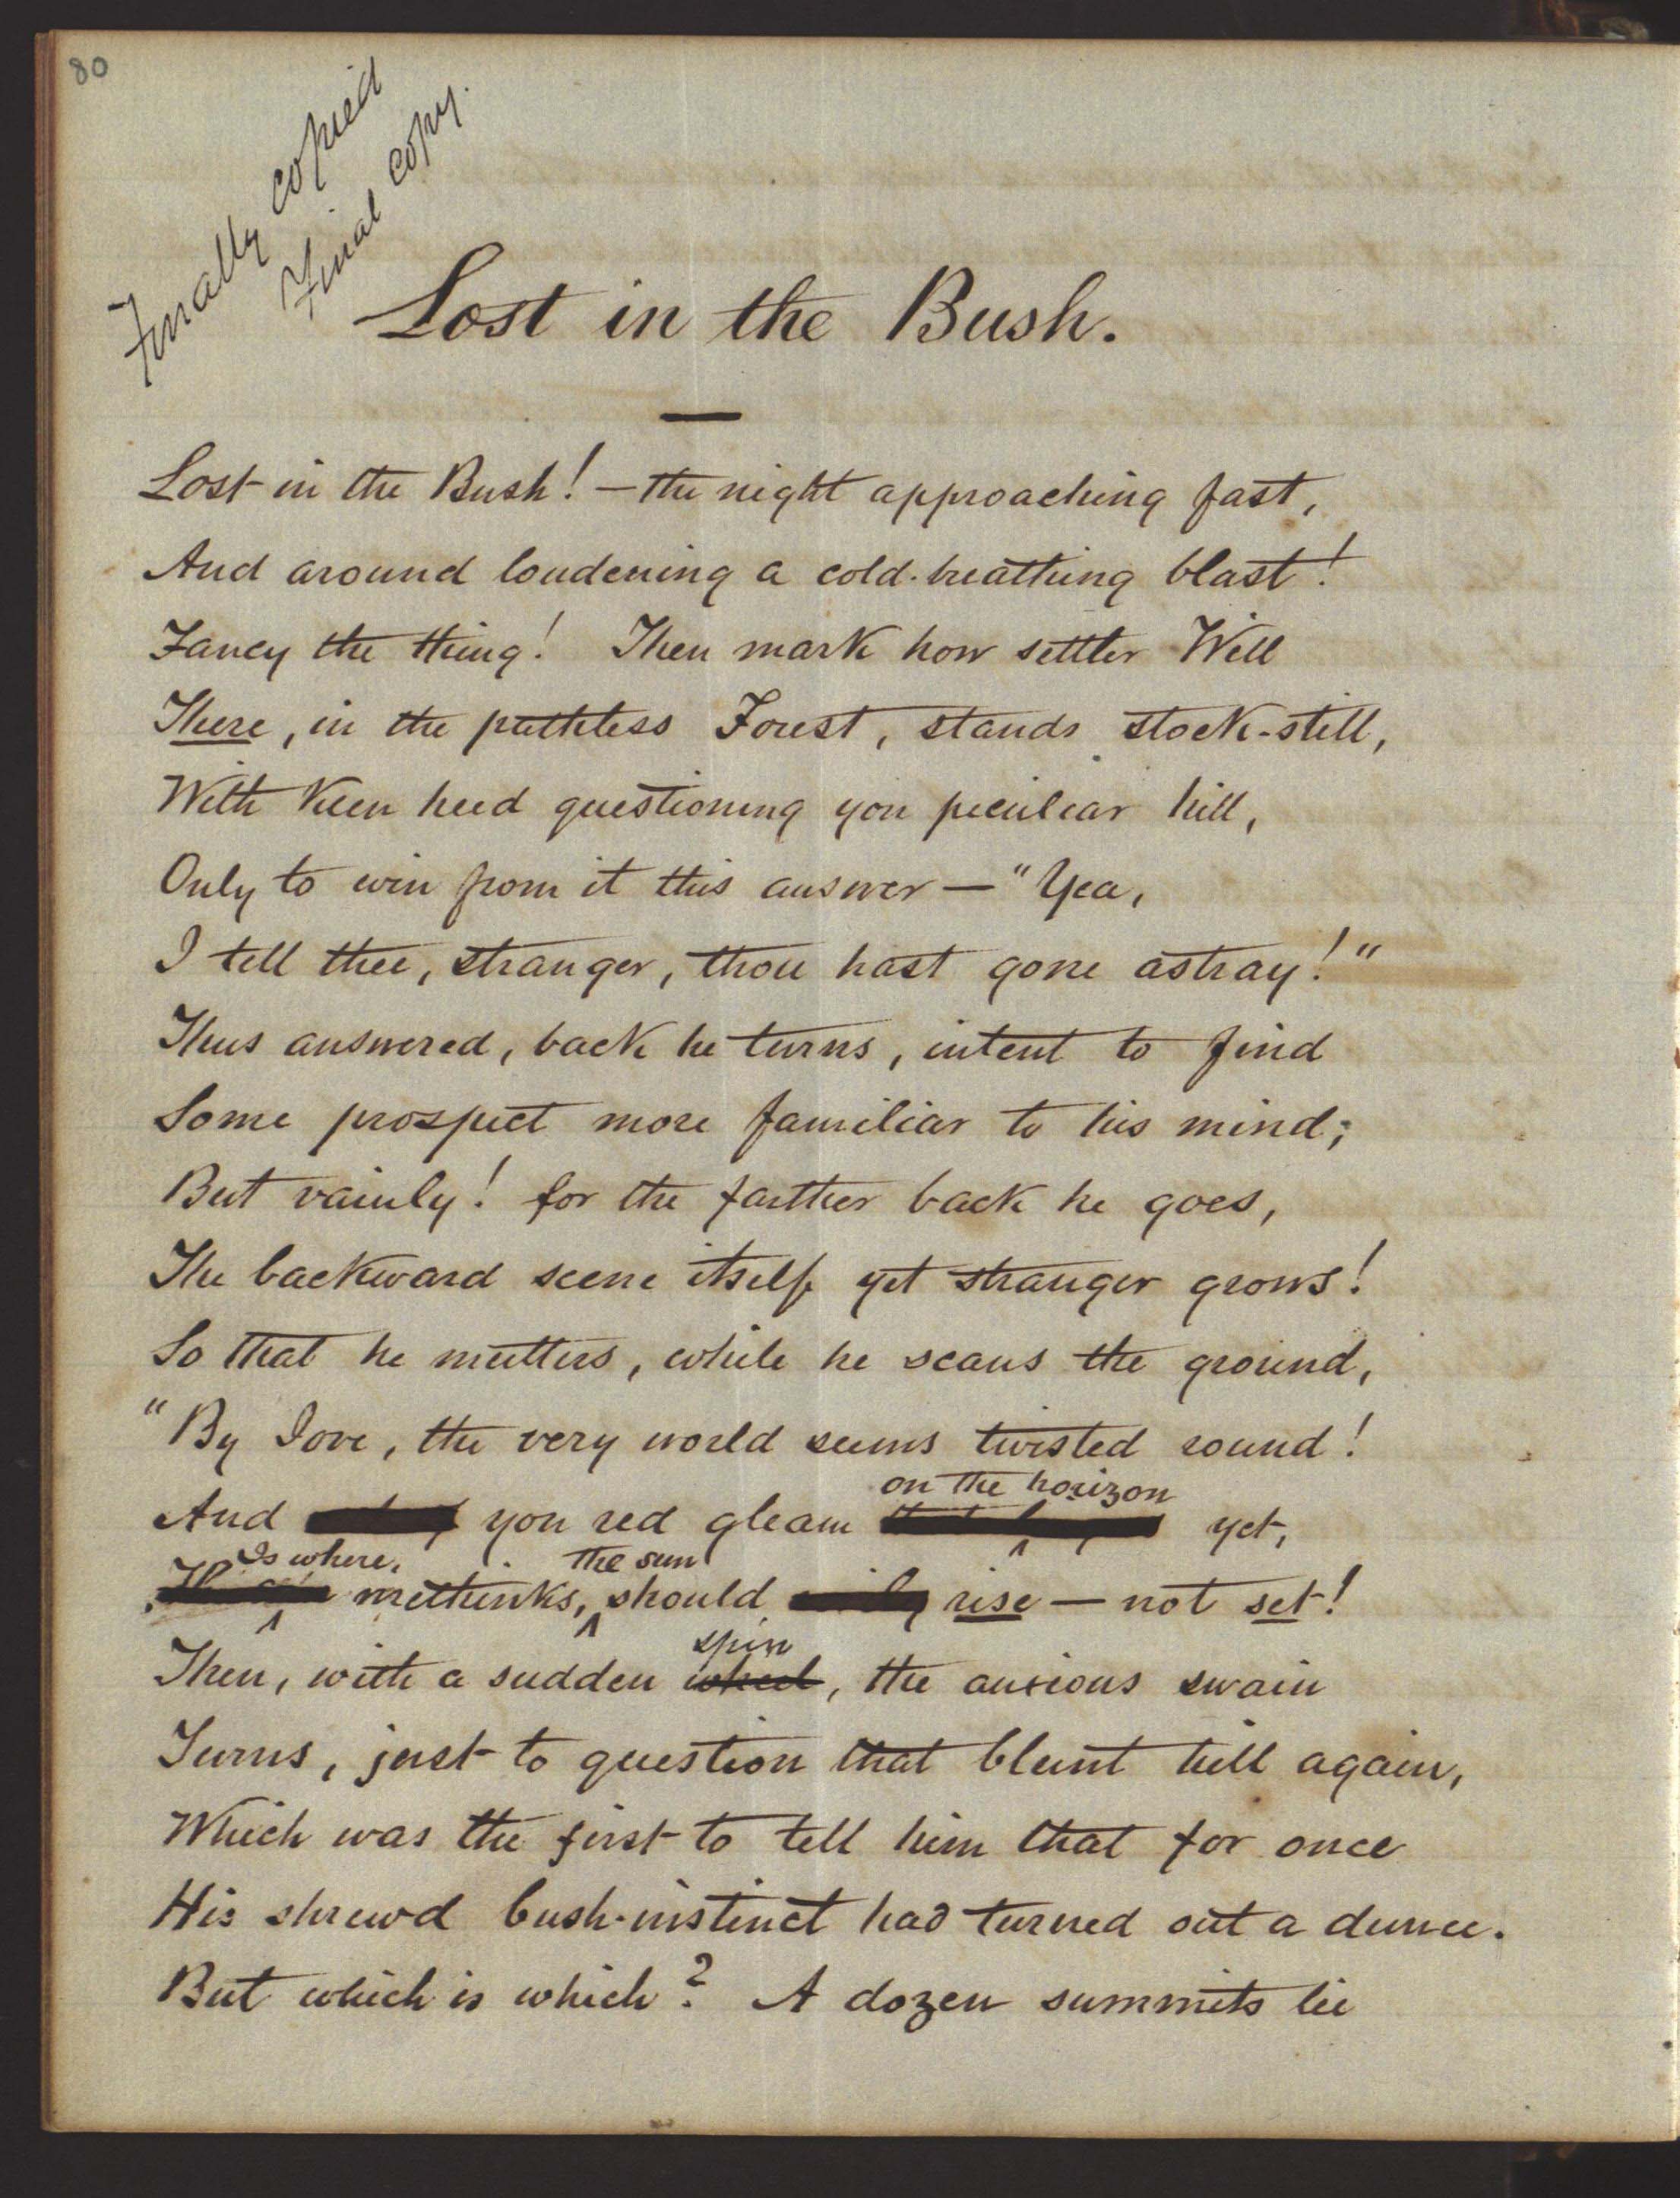 80
Finally copied
Final copy.
Lost in the Bush.
Lost in the Bush! — the night approaching fast,
And around loudening a cold-breathing blast!
Fancy the thing! Then mark how settler Will
There, in the pathless Forest, stands stock-still,
With keen heed questioning yon peculiar hill,
Only to win from it this answer — "Yea,
I tell thee, stranger, thou hast gone astray!"
Thus answered, back he turns, intent to find
Some prospect more familiar to his mind;
But vainly! for the farther back he goes,
The backward scene itself yet stranger grows!
So that he mutters, while he scans the ground,
"By Jove, the very world seems twisted round!
on the horizon
And yon red gleam yet,
Is where, the sun
methinks, should rise — not set!
spin
Then, with a sudden wheel, the anxious swain
Turns, just to question that blunt hill again,
Which was the first to tell him that for once
His shrewd bush-instinct had turned out a dunce.
But which is which? A dozen summits lie